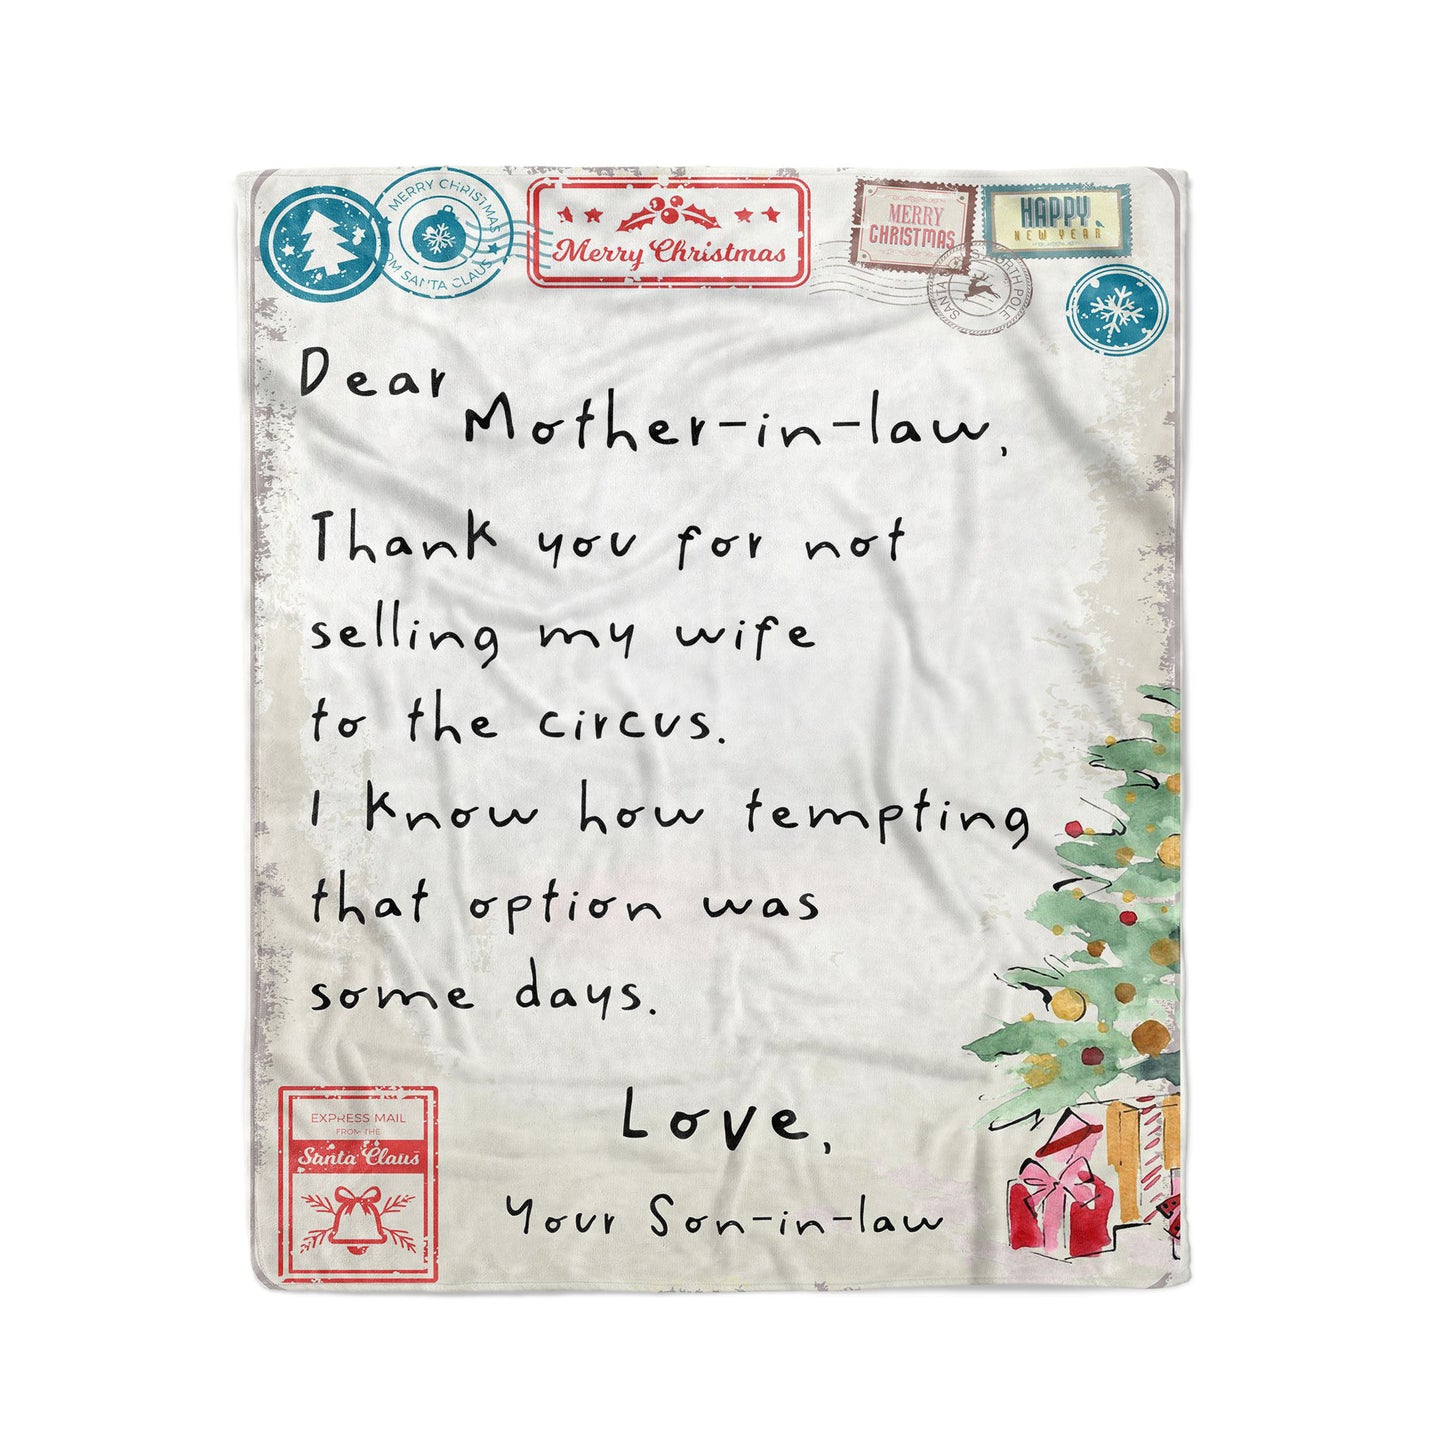 MERRY CHRISTMAS
OM SANTA CLAUS
Merry Christmas
MERRY
CHRISTMAS
HAPPY
NEW YEAR
SANTA
NORTH POLE
Dear Mother-in-law,
Thank you for not
selling my wife
to the circus.
I know how tempting
that option was
some days.
Love,
Your Son-in-law
EXPRESS MAIL
FROM THE
Santa Claus